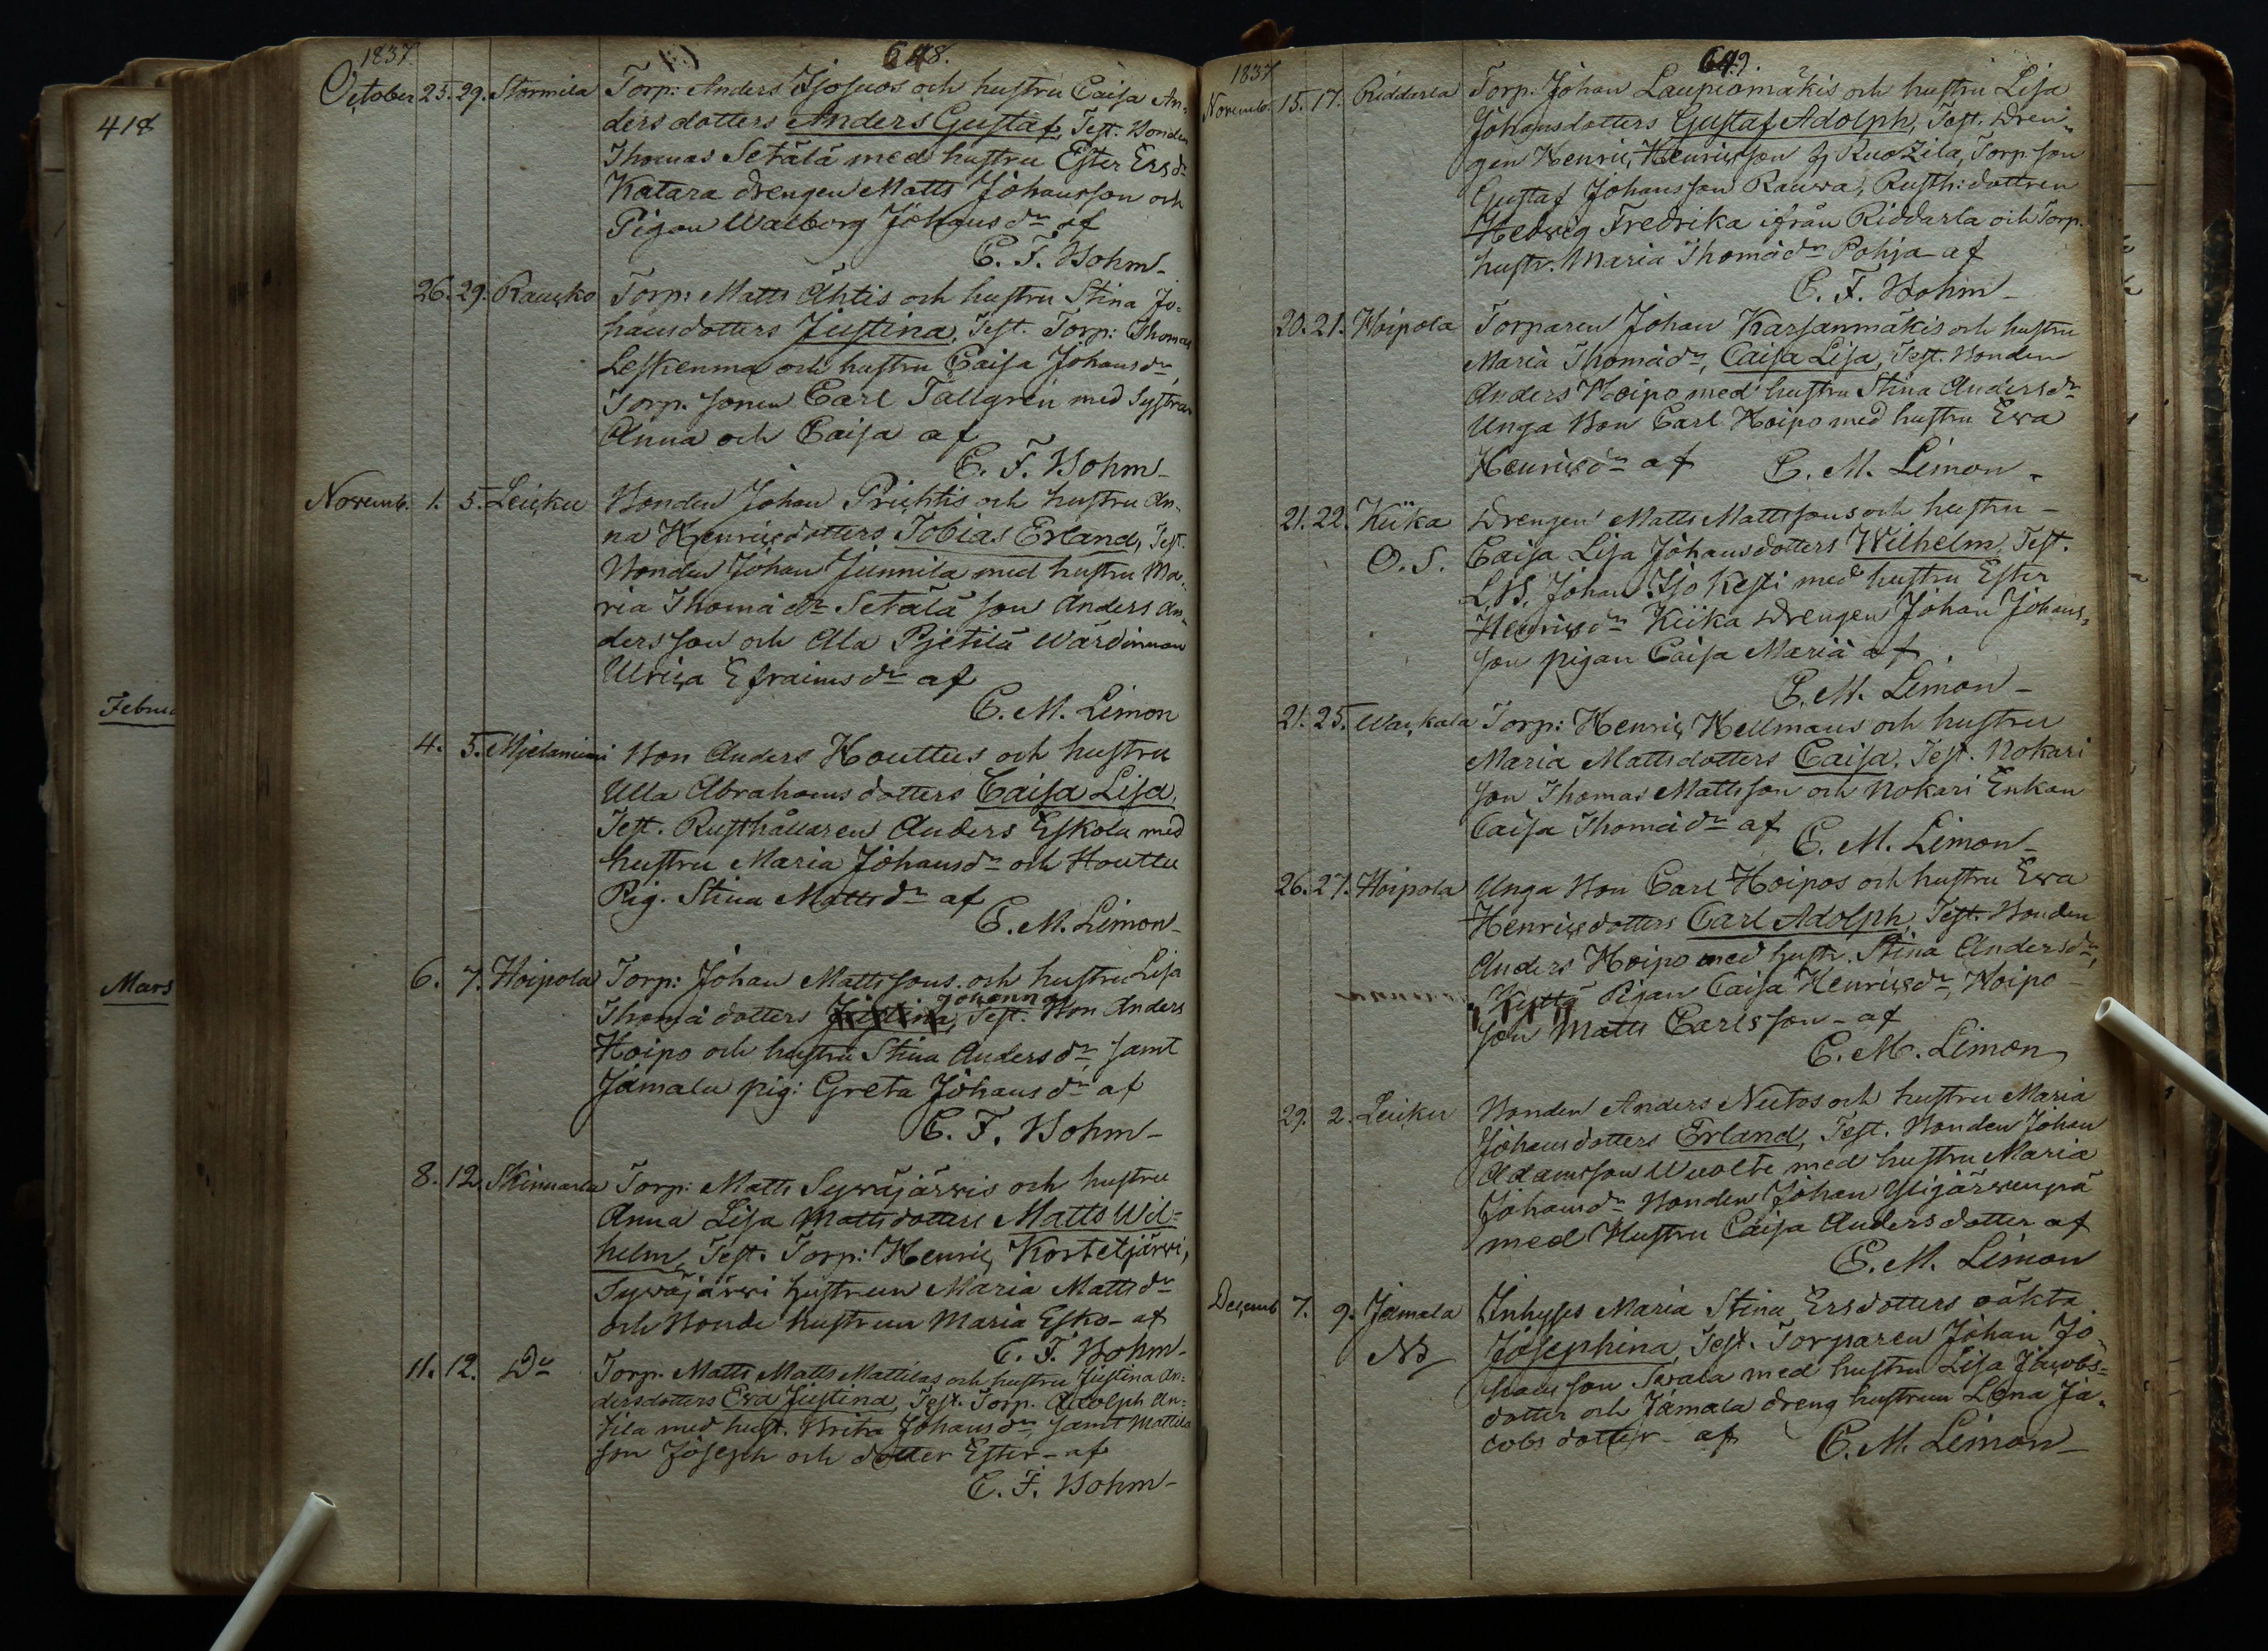 418
Februa
Mars
1837.
648.
October 25. 29. Stormila Torp: Anders Isosuos och hustru Caisa An-
dersdotters Anders Gustaf, Test. Bonden
Thomas Setälä med hustru Ester Ersdr
Katara drengen Matts Johansson och
Pigan Walborg Johansdr af
C. F. Bohm-
26. 29. Raucko Torp: Matts Ahtis och hustru Stina Jo-
hansdotters Justina, Test. Torp: Thomas
Leskenma och hustru Caisa Johansdr,
Torp. sonen Carl Tallgrén med Systrar
Anna och Caisa af
C. F. Bohm-
Novemb. 1. 5. Leicku Bonden Johan Prichtis och hustru An-
na Henricsdotters Tobias Erland, Test.
Bonden Johan Junnila med hustru Ma-
ria Thomädr Setälä son Anders An-
dersson och Ala Pjetilä Wärdinnan
Ulrica Efraimsdr af
C. M. Limon
4. 5. Mjelaniemi Bon Anders Houttus och hustru
Ulla Abrahamsdotters Caisa Lisa,
Test. Rusthållaren Anders Eskola med
hustru Maria Johansdr och Houttu
Pig. Stina Mattsdr af
C. M. Limon-
6. 7. Hoipola Torp: Johan Mattssons och hustru Lisa
Johanna
Thomädotters Justina, Test. Bon Anders
Hoipo och hustru Stina Andersdr, samt
Jamala pig: Greta Johansdr af
C. F. Bohm-
8. 12. Skinnarla Torp: Matts Sywäjärwis och hustru
Anna Lisa Mattsdotters Matts Wil-
helm, Test. Torp: Henric Kortetjärwi,
Sywäjärwi hustrun Maria Mattsdr
och Bonde hustrun Maria Esko- af
C. F. Bohm-
11. 12. Do Torp. Matts Matts Mattilas och hustru Justina An-
dersdotters Eva Justina, Test. Torp. Adolph An-
tila med hust. Brita Johansdr, samt Mattila
son Joseph och dotter Ester- af
C. F. Bohm-
1837
649.
Novemb. 15. 17. Ridderla Torp. Johan Laupiomäkis och hustru Lisa
Johansdotters Gustaf Adolph, Test. Dren-
gen Henric Henricsson fr Ruo Zila, Torp. son
Gustaf Johansson Rauwa, Rusth: dottren
Hedvig Fredrika ifrån Riddarla och Torp.
hustr. Maria Thomädr Pohja af
C. F. Bohm-
20. 21. Hoipola Torparen Johan Karsanmäkis och hustru
Maria Thomädr, Caisa Lisa, Test. Bonden
Anders Hoipo med hustru Stina Andersdr
Unga Bon Carl Hoipo med hustru Ewa
Henricsdr af C. M. Limon-
21. 22. Kiika Drengen Matts Mattssons och hustru-
O. S. Caisa Lisa Johansdotters Wilhelm, Test.
L, B, Johan Iso Kesti med hustru Ester
Henricsdr Kiika drengen Johan Johans-
son pigan Caisa Maria af
C. M. Limon-
21. 25. Wackala Torp: Henric Hellmans och hustru
Maria Mattsdotters Caisa, Test. Nokari
son Thomas Mattsson och Nokari Enkan
Caisa Thomädr af C. M. Limon-
26. 27. Hoipola Unga Bon Carl Hoipos och hustru Ewa
Henricsdotters Carl Adolph, Test. Bonden
Anders Hoipo med hustr. Stina Andersdr,
Kyttä Pigan Caisa Henricsdr, Hoipo-
son Matts Carlsson- af
C. M. Limon
29. 2. Leiku Bonden Anders Neutos och hustru Maria
Johansdotters Erland, Test. Bonden Johan
Adamsson Wuolte med hustru Maria
Johansdr Bonden Johan Ylijärwenpä
med Hustru Caisa Andersdotter af
C. M. Limon
Decemb 7. 9. Jamala Inhyses Maria Stina Ersdotters oäkta
NB Josephina, Test. Torparen Johan Jo-
hansson Swala med hustru Lisa Jacobs-
dotter och Jamala dreng hustrun Lena Ja-
cobsdotter- af C. M. Limon-